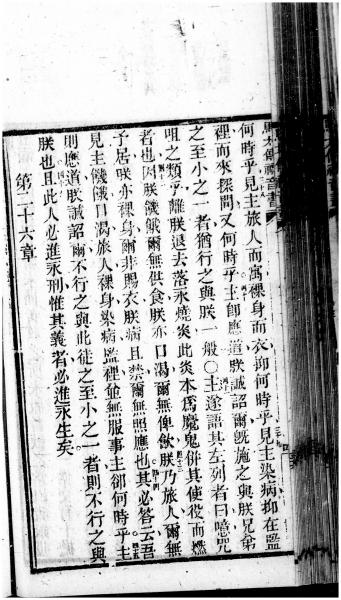 何時乎見主旅人而寓裸身而衣抑何時乎見主染病抑在監
裡而來探問又何時乎主卽應道朕誠詔爾旣施之與朕兄弟
之至小之一者猶行之與朕一般〇主遂語其左列者曰噫咒
咀之類乎離朕退去落永燒炎此炎本爲魔鬼併其使役而燃
者也因朕饑餓爾無供食朕亦口渴爾無俾飲朕乃旅人爾無
子居朕亦裸身爾非賜衣朕病且禁爾無照應也其必答云吾
見主饑餓口渴旅人裸身染病監裡並無服事主卻何時乎主
則應道朕誠詔爾不行之與此徒之至小之一者則不行之與
朕也且此人必進永刑惟其義者必進永生矣
第二十六章